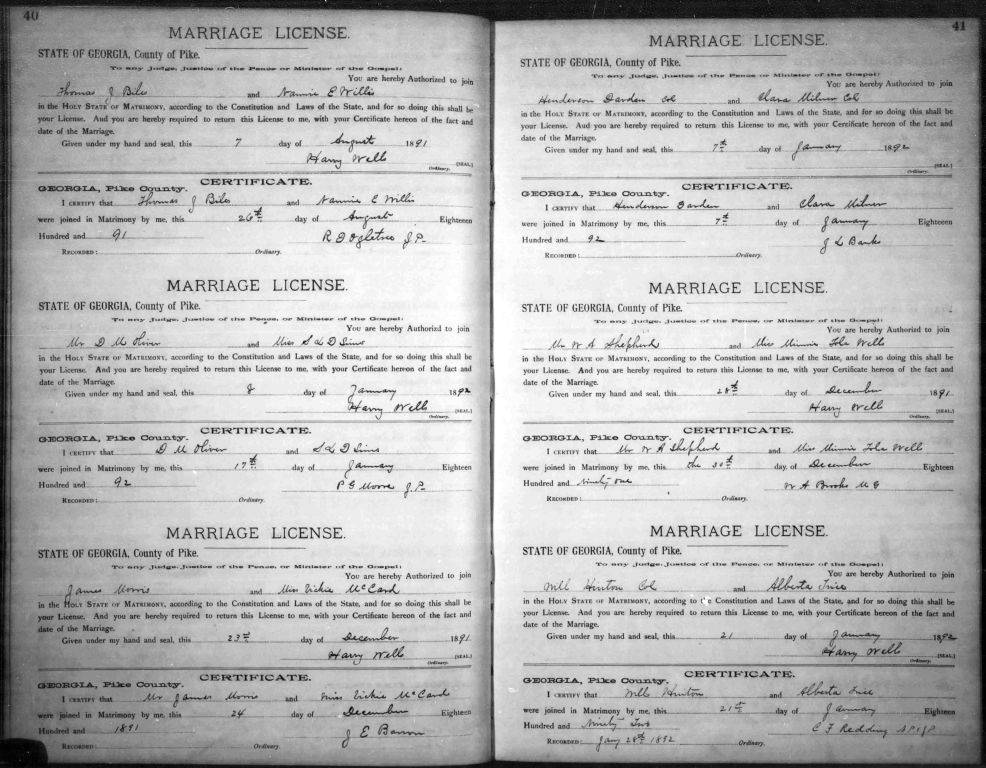 40
MARRIAGE LICENSE.
STATE OF GEORGIA, County of Pike.
To any Judge, Justice of the Peace or Minister of the Gospel:
You are hereby Authorized to join
Thomas J Biles and Nannie E Willis
in the HOLY STATE OF MATRIMONY, according to the Constitution and Laws of the State, and for so doing this shall be
your License. And you are hereby required to return this License to me, with your Certificate hereon of the fact and
date of the Marriage.
Given under my hand and seal, this 7 day of August 1891
Harry Wells [SEAL.]
Ordinary.
CERTIFICATE.
GEORGIA, Pike County.
I CERTIFY that Thomas J Biles and Nannie E Willis
were joined in Matrimony by me, this 26th day of August Eighteen
Hundred and 91 R D Ogletree J.P.
RECORDED: Ordinary.
MARRIAGE LICENSE.
STATE OF GEORGIA, County of Pike.
To any Judge, Justice of the Peace, or Minister of the Gospel:
You are hereby Authorized to join
Mr D M Oliver and Miss S L D Sims
in the HOLY STATE OF MATRIMONY, according to the Constitution and Laws of the State, and for so doing this shall be
your License. And you are hereby required to return this License to me, with your Certificate hereon of the fact and
date of the Marriage.
Given under my hand and seal, this 8 day of January 1892
Harry Wells [SEAL.]
Ordinary.
CERTIFICATE.
GEORGIA, Pike County.
I CERTIFY that D M Oliver and S L D Sims
were joined in Matrimony by me, this 17th day of January Eighteen
Hundred and 92 P G Moore J.P.
RECORDED: Ordinary.
MARRIAGE LICENSE.
STATE OF GEORGIA, County of Pike.
To any Judge, Justice of the Peace, or Minister of the Gospel:
You are hereby Authorized to join
James Morris and Miss Vickie McCard
in the HOLY STATE OF MATRIMONY, according to the Constitution and Laws of the State, and for so doing this shall be
your License. And you are hereby required to return this License to me, with your Certificate hereon of the fact and
date of the Marriage.
Given under my hand and seal, this 23rd day of December 1891
Harry Wells [SEAL.]
Ordinary.
CERTIFICATE.
GEORGIA, Pike County.
I CERTIFY that Mr James Morris and Miss Vickie McCard
were joined in Matrimony by me, this 24 day of December Eighteen
Hundred and 1891 J E Barron
RECORDED: Ordinary.
41
MARRIAGE LICENSE.
STATE OF GEORGIA, County of Pike.
To any Judge, Justice of the Peace or Minister of the Gospel:
You are hereby Authorized to join
Henderson Darden Col and Clara Milner Col
in the HOLY STATE OF MATRIMONY, according to the Constitution and Laws of the State, and for so doing this shall be
your License. And you are hereby required to return this License to me, with your Certificate hereon of the fact and
date of the Marriage.
Given under my hand and seal, this 7th day of January 1892
[SEAL.]
Ordinary.
CERTIFICATE.
GEORGIA, Pike County.
I CERTIFY that Henderson Darden and Clara Milner
were joined in Matrimony by me, this 7th day of January Eighteen
Hundred and 92 J L Banks
RECORDED: Ordinary.
MARRIAGE LICENSE.
STATE OF GEORGIA, County of Pike.
To any Judge, Justice of the Peace, or Minister of the Gospel:
You are hereby Authorized to join
Mr W A Shepherd and Miss Minnie Wells
in the HOLY STATE OF MATRIMONY, according to the Constitution and Laws of the State, and for so doing this shall be
your License. And you are hereby required to return this License to me, with your Certificate hereon of the fact and
date of the Marriage.
Given under my hand and seal, this 28th day of December 1891
Harry Wells [SEAL.]
Ordinary.
CERTIFICATE.
GEORGIA, Pike County.
I CERTIFY that Mr W A Shepherd and Miss Minnie Wells
were joined in Matrimony by me, this the 30th day of December Eighteen
Hundred and ninety one W A Brooks M G
RECORDED: Ordinary.
MARRIAGE LICENSE.
STATE OF GEORGIA, County of Pike.
To any Judge, Justice of the Peace, or Minister of the Gospel:
You are hereby Authorized to join
Will Hinton Col and Alberta Trice
in the HOLY STATE OF MATRIMONY, according to the Constitution and Laws of the State, and for so doing this shall be
your License. And you are hereby required to return this License to me, with your Certificate hereon of the fact and
date of the Marriage.
Given under my hand and seal, this 21 day of January 1892
Harry Wells [SEAL.]
Ordinary.
CERTIFICATE.
GEORGIA, Pike County.
I CERTIFY that Will Hinton and Alberta Trice
were joined in Matrimony by me, this 21st day of January Eighteen
Hundred and Ninety Two C F Redding
RECORDED: Jany 28th 1892 Ordinary.